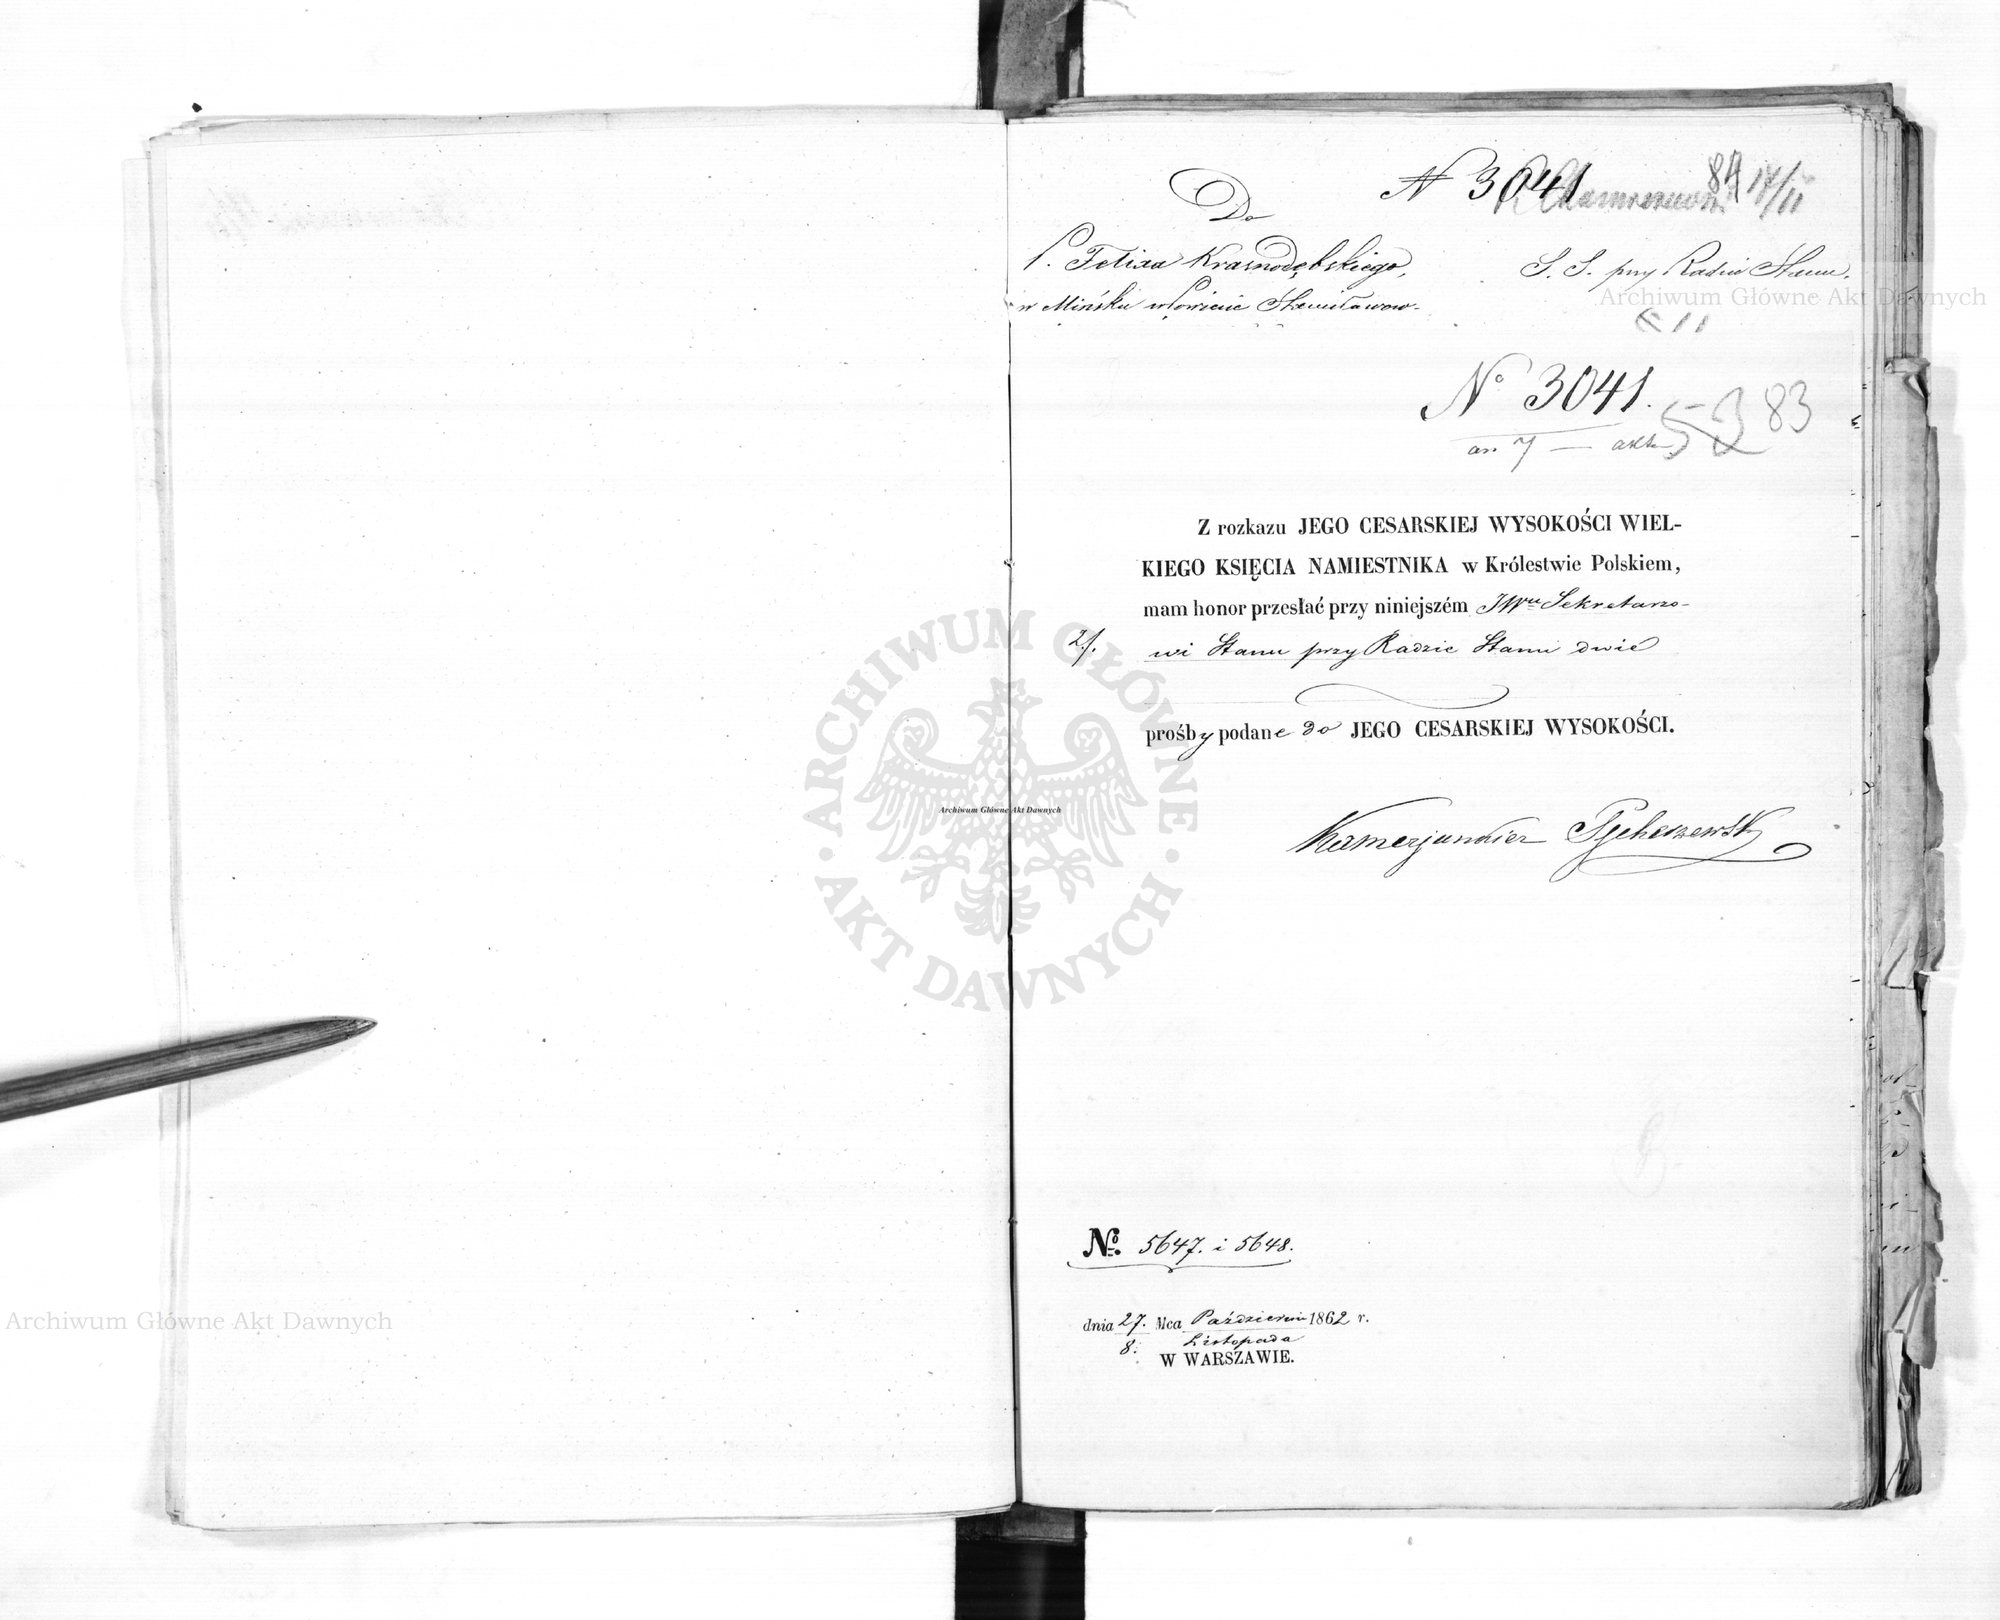 N 3041
84 17/11
Do
P. Felixa Krasnodębskiego,
w Mińsku w Powiecie Stanisławow-
S. S. przy Radzie Stanu.
Archiwum Główne Akt Dawnych
11
Nº 3041.
an 7 — akt
53 83
Z rozkazu JEGO CESARSKIEJ WYSOKOŚCI WIEL-
KIEGO KSIĘCIA NAMIESTNIKA w Królestwie Polskiem,
mam honor przesłać przy niniejszém JWu Sekretarzo-
2/. wi Stanu przy Radzie Stanu dwie
prośby podane do JEGO CESARSKIEJ WYSOKOŚCI.
Archiwum Główne Akt Dawnych
ARCHIWUM GŁÓWNE
AKT DAWNYCH
Kamerjunkier
№. 5647. i 5648.
dnia 27. Mca Październi 1862 r.
8. Listopada
W WARSZAWIE.
Archiwum Główne Akt Dawnych